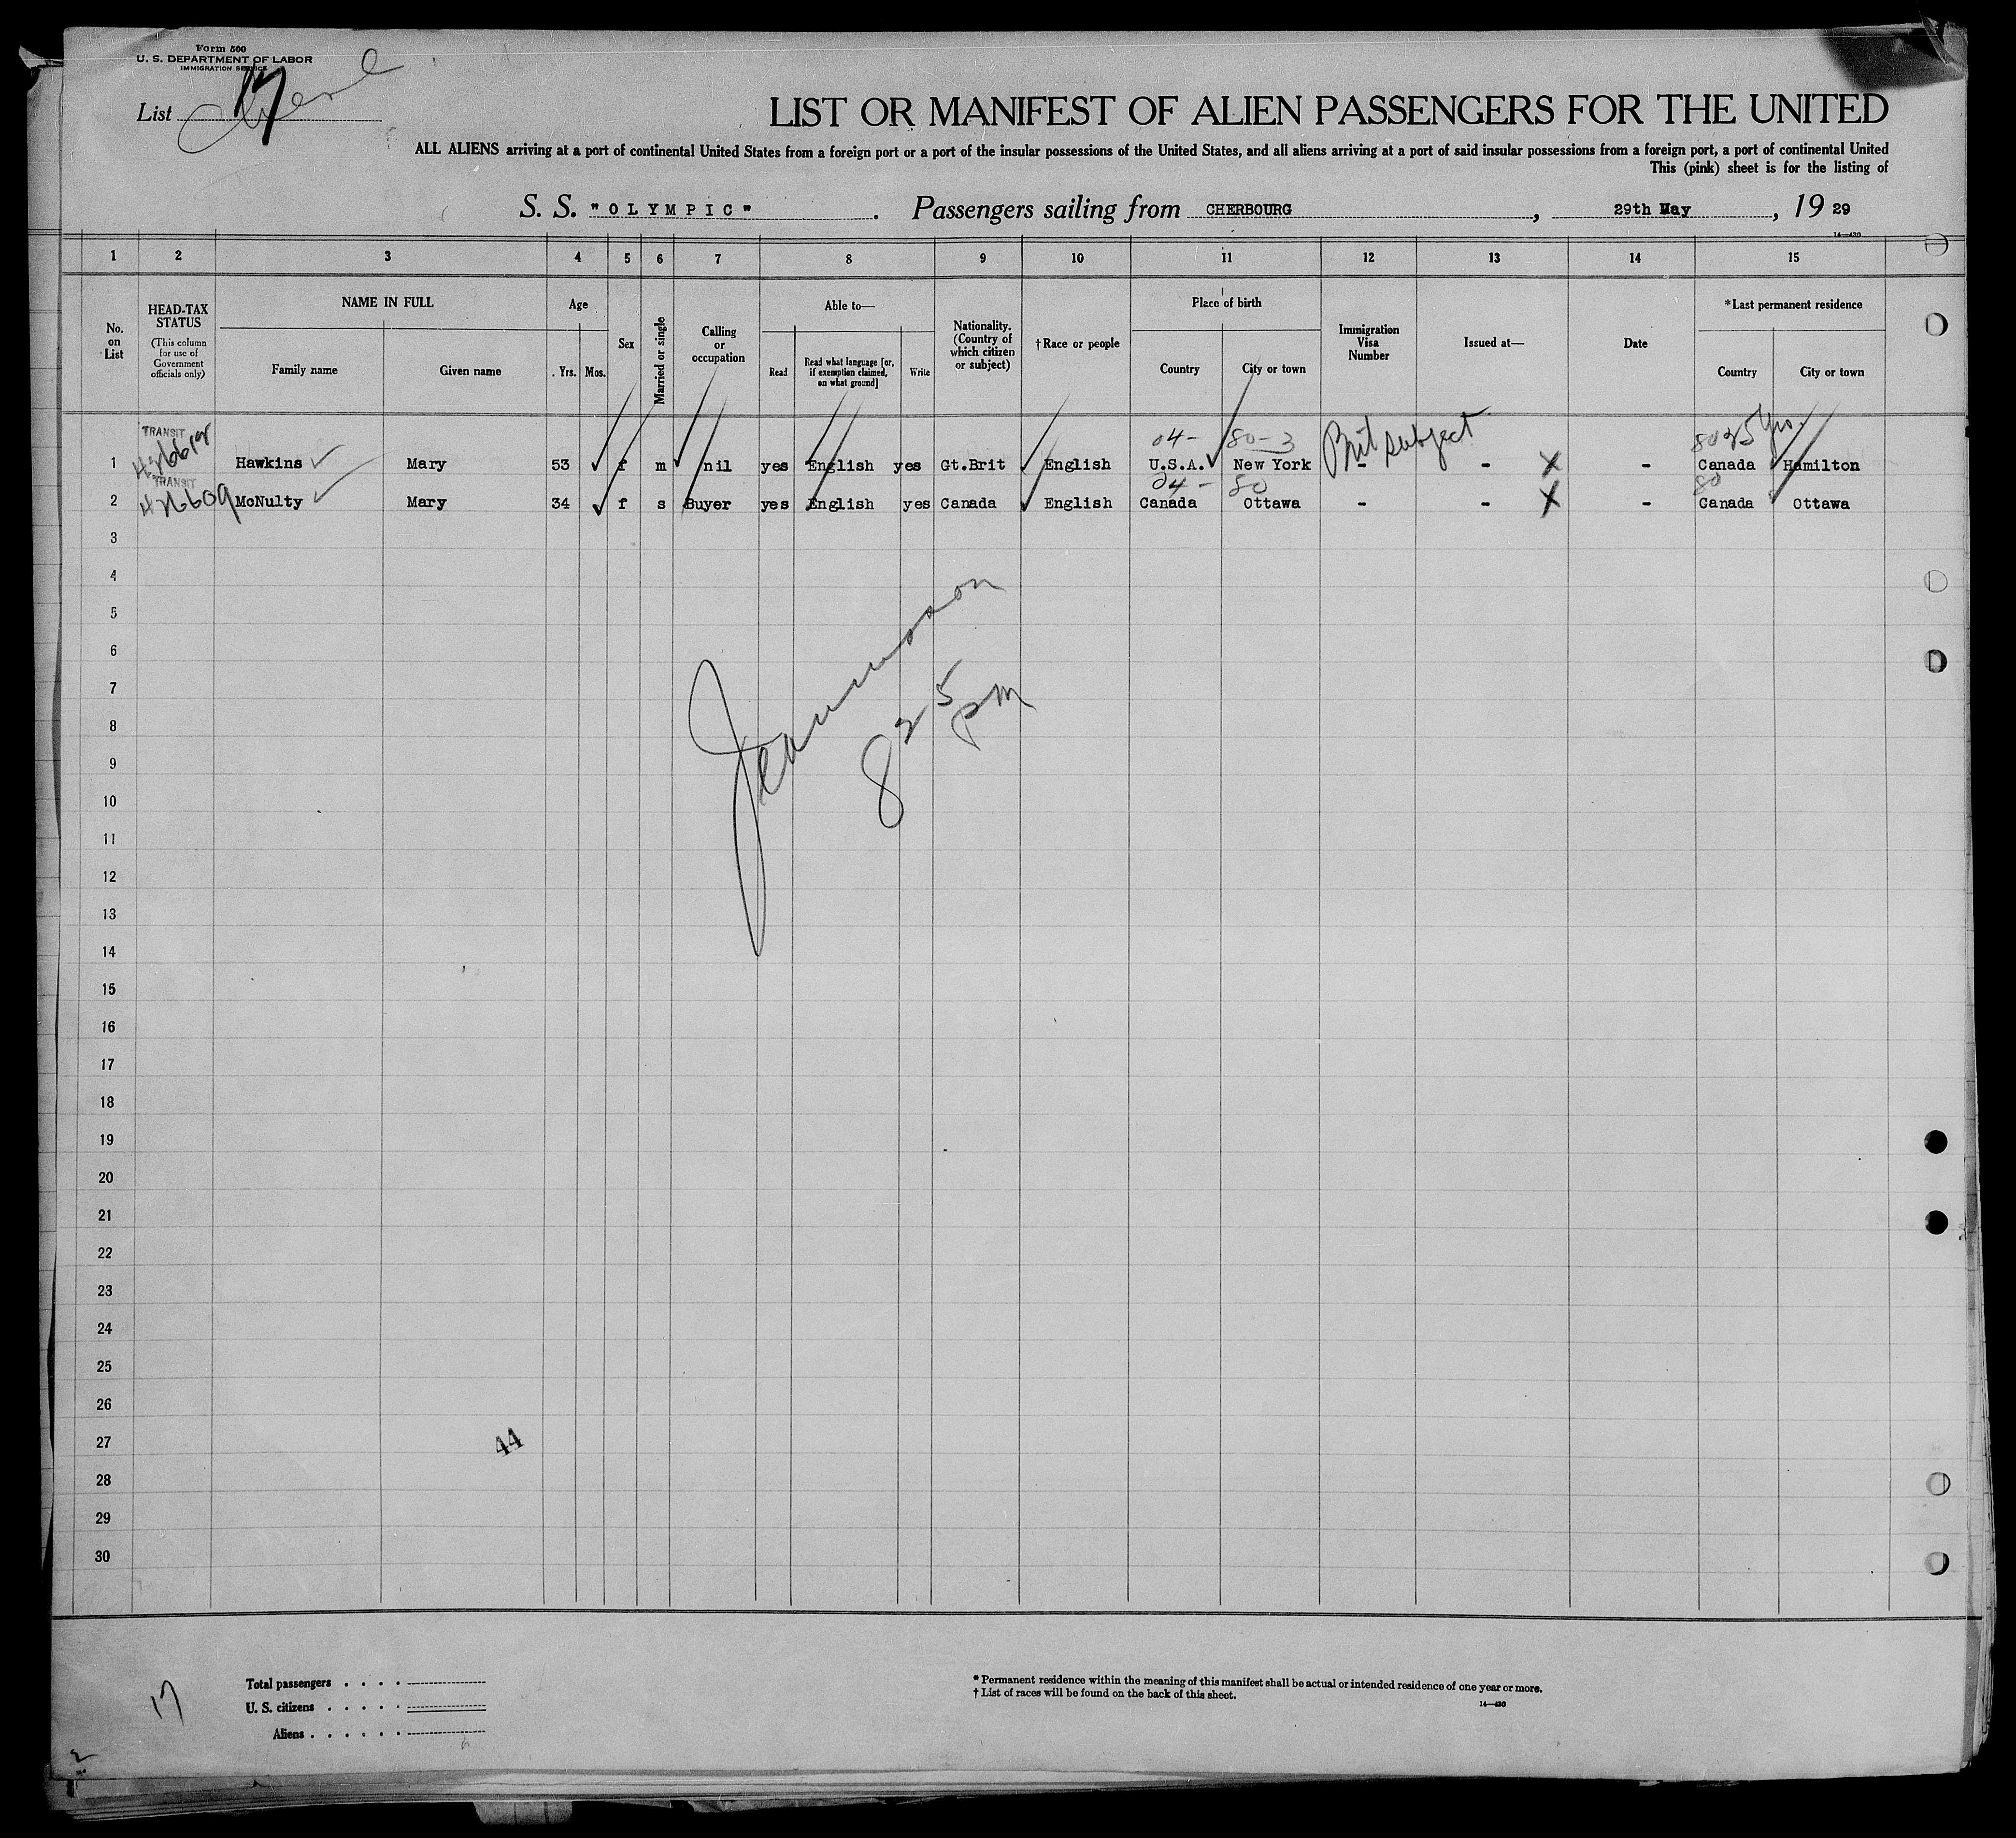 Form 500
U. S. DEPARTMENT OF LABOR
IMMIGRATION SERVICE
List 17
LIST OR MANIFEST OF ALIEN PASSENGERS FOR THE UNITED
ALL ALIENS arriving at a port of continental United States from a foreign port or a port of the insular possessions of the United States, and all aliens arriving at a port of said insular possessions from a foreign port, a port of continental United
This (pink) sheet is for the listing of
S. S. "OLYMPIC". Passengers sailing from CHERBOURG, 29th May, 19 29
14—430
1 2 3 4 5 6 7 8 9 10 11 12 13 14 15
No. on List
HEAD-TAX STATUS
(This column for use of Government officials only)
NAME IN FULL
Family name Given name
Age
Yrs. Mos.
Sex
Married or single
Calling or occupation
Able to—
Read Read what language [or, if exemption claimed, on what ground] Write
Nationality. (Country of which citizen or subject)
†Race or people
Place of birth
Country City or town
Immigration Visa Number
Issued at—
Date
*Last permanent residence
Country City or town
TRANSIT 04- 80-3 Brit subject 80 25 yrs.
1 Hawkins Mary 53 f m nil yes English yes Gt.Brit English U.S.A. New York - - X - Canada Hamilton
TRANSIT 426609 04- 80 80
2 McNulty Mary 34 f s Buyer yes English yes Canada English Canada Ottawa - - X - Canada Ottawa
3
4
5
6
7
8
9
10
11
12
13
14
15
16
17
18
19
20
21
22
23
24
25
26
27
28
29
30
8 25 pm
44
17
Total passengers
U. S. citizens
Aliens
* Permanent residence within the meaning of this manifest shall be actual or intended residence of one year or more.
† List of races will be found on the back of this sheet.
14—430
2